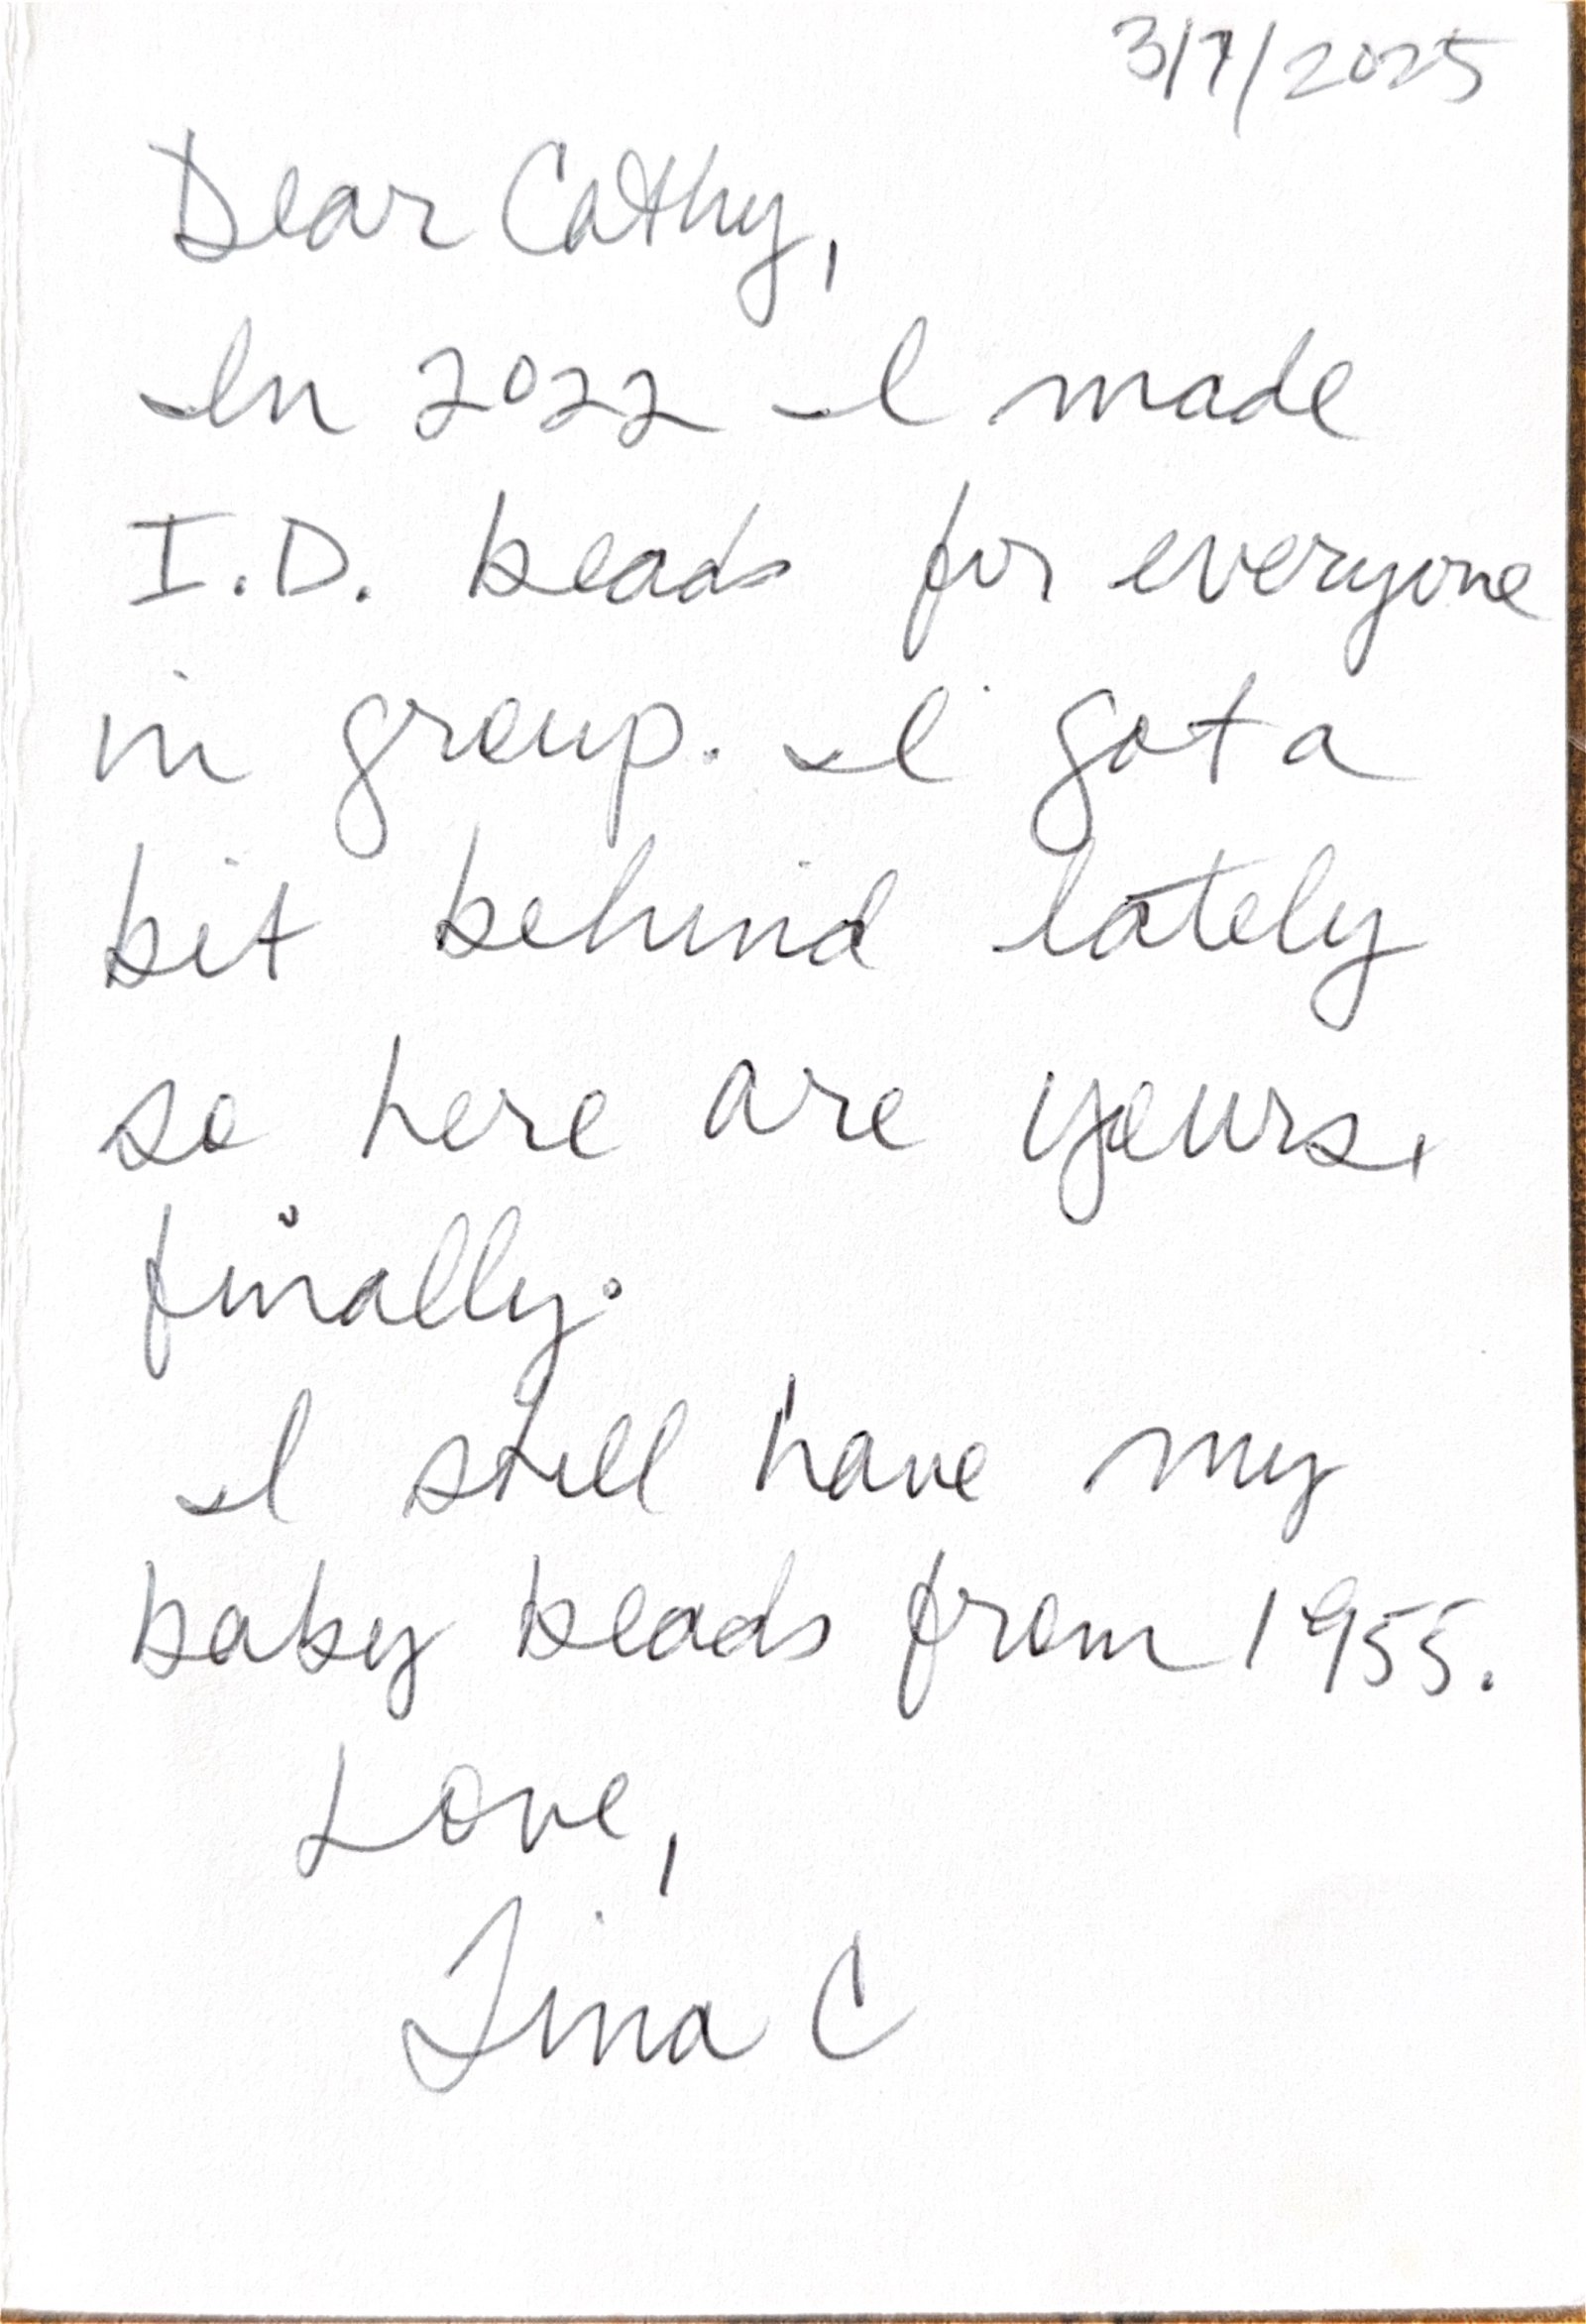 3/7/2025
Dear Cathy,
In 2022 I made
I.D. beads for everyone
in group. I got a
bit behind lately
so here are yours,
finally.
I still have my
baby beads from 1955.
Love,
Tina C